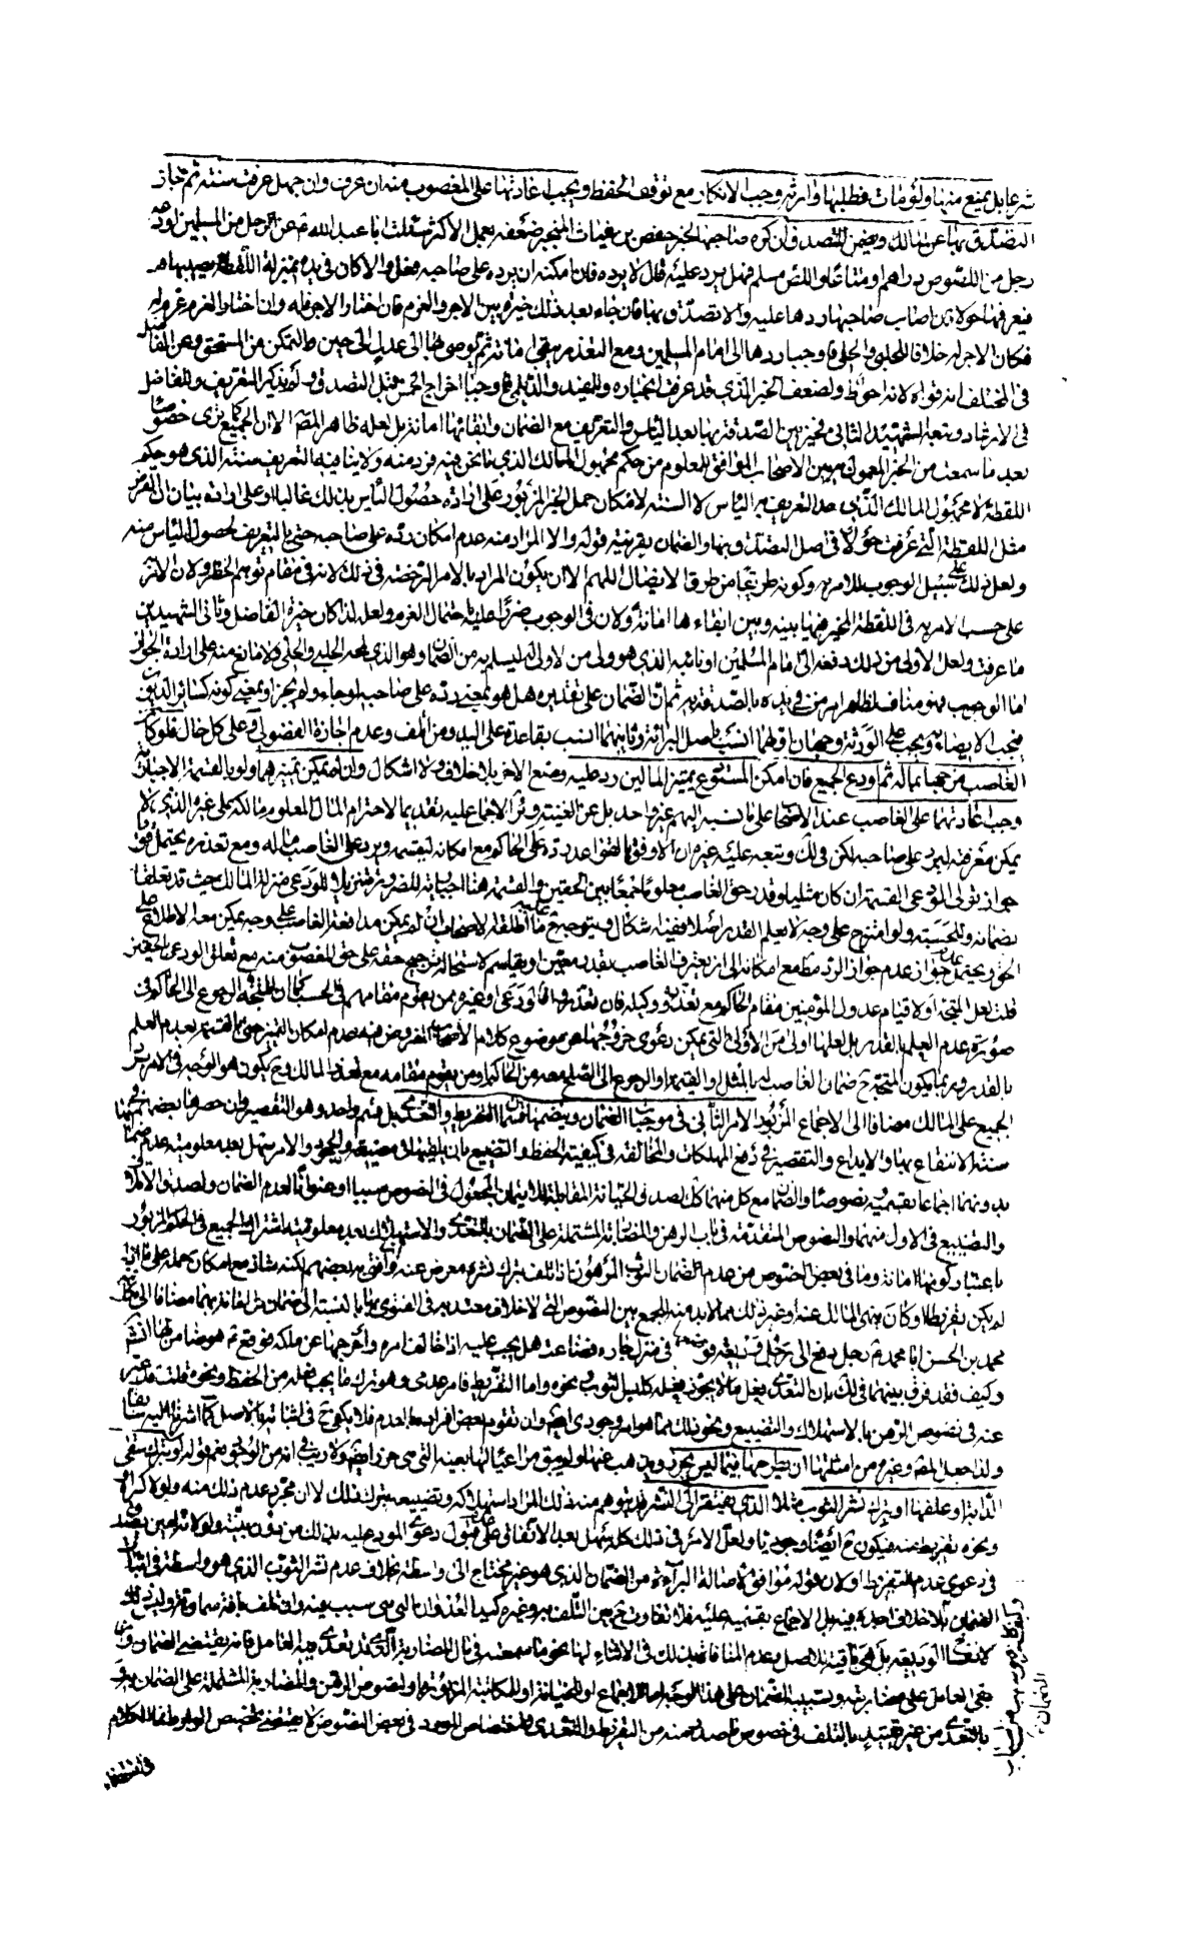 شرعا بل يمنع منها ولو مات فطلبها وارثه وجب الانكار مع توقف الحفظ ويجب اعادتها على المغصوب منه ان عرف وان جهل عرفت سنة ثم جاز
التصدق بها عن المالك ويضمن المتصدق ان كره صاحبها لخبر حفص بن غياث المنجبر ضعفه بعمل الاكثر سئلت ابا عبد الله ع عن الرجل من المسلمين اودعه
رجل من اللصوص دراهم او متاعا واللص مسلم فهل يرد عليه قال لا يرده فان امكنه ان يرده على صاحبه فعل والا كان في يده بمنزلة اللقطة يصيبها
فيعرفها حولا فان اصاب صاحبها ردها عليه والا تصدق بها فان جاء بعد ذلك خيره بين الاجر والغرم فان اختار الاجر فله وان اختار الغرم غرم له
فكان الاجر له خلافا للحلبي والحلي فاوجبا ردها الى امام المسلمين ومع التعذر يبقى امانة ثم يوصى بها الى عدل الى حين التمكن من المستحق وعن
في المختلف انه قواه لانه احوط ولضعف الخبر الذي قد عرفت انجباره وللمفيد والديلمي فاوجبا اخراج الخمس قبل التصدق ولم يذكرا التعريف وللفاضل
في الارشاد وتبعه الشهيد الثاني فخير بين الصدقة بها بعد الياس والتعريف مع الضمان وابقائها امانة بل لعله ظاهر
بعد ما سمعت من الخبر المعمول به بين الاصحاب الموافق للمعلوم من حكم مجهول المالك الذي ما نحن فيه فرد منه ولا ينافيه التعريف سنة الذي هو حكم
اللقطة لا مجهول المالك الذي حد التعريف به الياس لا السنة لامكان حمل الخبر المزبور على ارادة حصول الياس بذلك غالبا او على ارادة بيان ان
مثل اللقطة التي عرفت حولا في اصل التصدق بها والضمان بقرينة قوله والا المراد منه عدم امكان رده على صاحبه حتى بالتعريف لحصول الياس منه
ولعل ذلك على سبيل الوجوب للامر به وكونه طريقا من طرق الايصال اللهم الا ان يكون المراد بالامر الرخصة في ذلك لانه في مقام توهم الحظر ولان الامر
على حسب الامر به في اللقطة المخير فيها بينه وبين ابقاءها امانة ولان في الوجوب ضررا عليه باحتمال الغرم ولعله لذا كان خيرة الفاضل وثاني الشهيدين
ما عرفت ولعل الاولى من ذلك دفعه الى امام المسلمين او نائبه الذي هو ولي من لا ولي له ليسلم به من الضمان وهو الذي لحظه الحلبي والحلي ولا مانع منه على ارادة الجواز
اما الوجوب فهو مناف لظاهر امر من في يده بالصدقة به ثم ان الضمان على تقديره هل هو بمعنى رده على صاحبه لو جاء ولم يجز او بمعنى كونه كسائر الديون
فيجب الايصاء به ويجب على الورثة وجهان اولهما انسب باصل البرائة وثانيهما انسب بقاعدة على اليد ومن اتلف وعدم اجازة الفضولي وعلى كل حال فلو كان
الغاصب مزجها بماله ثم اودع الجميع فان امكن المستودع تمييز المالين رد عليه ومنع الاخر بلا خلاف ولا اشكال وان لم يمكن تمييزهما ولو بالقسمة الاجبارية
وجب اعادتهما على الغاصب عند الاصحاب على ما نسبه اليهم غير واحد بل عن الغنية وئر الاجماع عليه تقديما لاحترام المال المعلوم مالكه على غيره الذي لا
يمكن معرفته ليرد على صاحبه لكن في لك ويتجه عليه غير ان الاوفق بالقواعد رده على الحاكم مع امكانه ليقسمه ويرد على الغاصب ماله ومع تعذره يحتمل
جواز تولى المودعى القسمة ان كان مثليا وقدر حق الغاصب معلوما جمعا بين الحقين والقسمة هنا اجبارية للضرورة تنزيلا للودعى منزلة المالك حيث قد تعلقا
بضمانه وللحسبة ولو امتزج على وجه لا يعلم القدر اصلا ففيه اشكال ويتوجه ح ما اطلقه الاصحاب ان لم يمكن مدافعة الغاصب على وجه يمكن معه الاطلاع على
الحق ويحتمل جواز عدم جواز الرد مطلقا مع امكانه الى ان يعترف الغاصب بقدر معين او يقاسم لاستحالة ترجيح حقه على حق المغصوب منه مع تعلق الودعى بالحقين
قلت لعل المتجه اولا قيام عدول المؤمنين مقام الحاكم مع تعذره ووكيله فان تعذروا قام الودعى او غيره ممن يقوم مقامهم في الحسب كما ان المتجه الرجوع الى الحاكم في
صورة عدم العلم بالقدر بل لعلها اولى من الاولى التي يمكن دعوى خروجها عن موضوع كلام الاصحاب المفروض فيه عدم امكان التمييز حتى بالقسمة بعدم العلم
بالقدر وربما يكون المتجه ح ضمان الغاصب له بالمثل او القيمة او الرجوع الى الصلح معه من الحاكم او من يقوم مقامه مع تعذر المالك وح يكون هو الوجه في الامر برد
الجميع على المالك مضافا الى الاجماع المزبور الامر الثاني في موجبات الضمان وينظمها قسمان التفريط والتعدي بل قسم واحد وهو التقصير وان حصرها بعضهم في
ستة الانتفاع بها والايداع والتقصير في دفع المهلكات والمخالفة في كيفية الحفظ والتضييع بان يلقيها في مضيعة والجحود والامر سهل بعد معلومية عدم
بدونهما اجماعا بقسميه ونصوصا والضمان مع كل منهما كك لصدق الخيانة المقابلة للايتمان المجعول في النصوص سببا وعنوانا لعدم الضمان ولصدق الاتلاف
والتضييع في الاول منهما والنصوص المتقدمة في باب الرهن والمضاربة المشتملة على الضمان بالتعدي والاستهلاك بعد معلومية اشتراك الجميع في الحكم المزبور
باعتبار كونها امانة وما في بعض النصوص من عدم الضمان للثوب المرهون اذا تلف بترك نشره معرض عنه وان افتى به بعضهم لكنه شاذ مع امكان حمله على ما اذا
لم يكن تفريطا او كان نهى المالك عنه او غير ذلك مما لا بد منه للجمع بين النصوص التي لا خلاف معتد به في الفتوى بها بالنسبة الى ضمان الامانة بهما مضافا الى مكاتبة
محمد بن الحسن ابا محمد ع رجل دفع الى رجل وديعة فوضعها في منزل جاره فضاعت هل يجب عليه اذا خالف امره واخرجها عن ملكه فوقع ع هو ضامن لها انشاء الله
وكيف فقد فرق بينهما في لك بان التعدي فعل ما لا يجوز فعله كلبس الثوب ونحوه واما التفريط فامر عدمى وهو ترك ما يجب فعله من الحفظ ونحوه قلت قد عبر
عنه في نصوص الرهن بالاستهلاك والتضييع ونحو ذلك مما هو امر وجودى ايضا وان تقوم بعض افراده بالعدم فلا يكفي ح في اثباته بالاصل كما اشرنا اليه سابقا
ولذا جعل المص وغيره من امثلتها ان يطرحها فيما ليس بحرز ويذهب عنها ولو بقي من اعيالها بعينه التي هي حرز ايضا ولا ريب في انه من الوجودى نعم قوله او يترك سقى
الدابة او علفها او يترك نشر الثوب مثلا الذي يفتقر الى النشر قد يتوهم منه ذلك المراد استهلاكه وتضييعه بترك ذلك لا ان مجرد عدم ذلك منه ولو لاكراه
ونحوه تفريط منه فيكون ح ايضا وجوديا ولعل الامر في ذلك كله سهل بعد الاتفاق على قبول دعوى المودع عليه بذلك من دون بينة ولو لانه امين يصدق
في دعوى عدم التفريط او لان قوله موافق لاصالة البرائة من الضمان الذي هو غير محتاج الى واسطة بخلاف عدم نشر الثوب الذي هو واسطة في اثبات
الضمان بلا خلاف اجده فيه بل الاجماع بقسميه عليه فلا تفاوت ح بين التلف به وغيره كيد العدوان التي هي سبب فيه وان تلف بآفة سماوية وليس ذلك
لانفساخ الوديعة بل هي باقية للاصل بعدم المنافاة بين ذلك في الاثناء لها نحو ما سمعته في مال المضاربة الذي قد تعدى فيه العامل فانه يقتضي الضمان وان
بقي العامل على مضاربته وتسبيب الضمان على هذا الوجه اما للاجماع او للخيانة او للمكاتبة المزبورة او لنصوص الرهن والمضاربة المشتملة على الضمان
بالتعدي من غير تقييد بالتلف في خصوص ما صدر منه من التفريط والتعدي واختصاص المورد في بعض النصوص لا يقتضي تخصيص الوارد فلا كلام
في اقتضاء